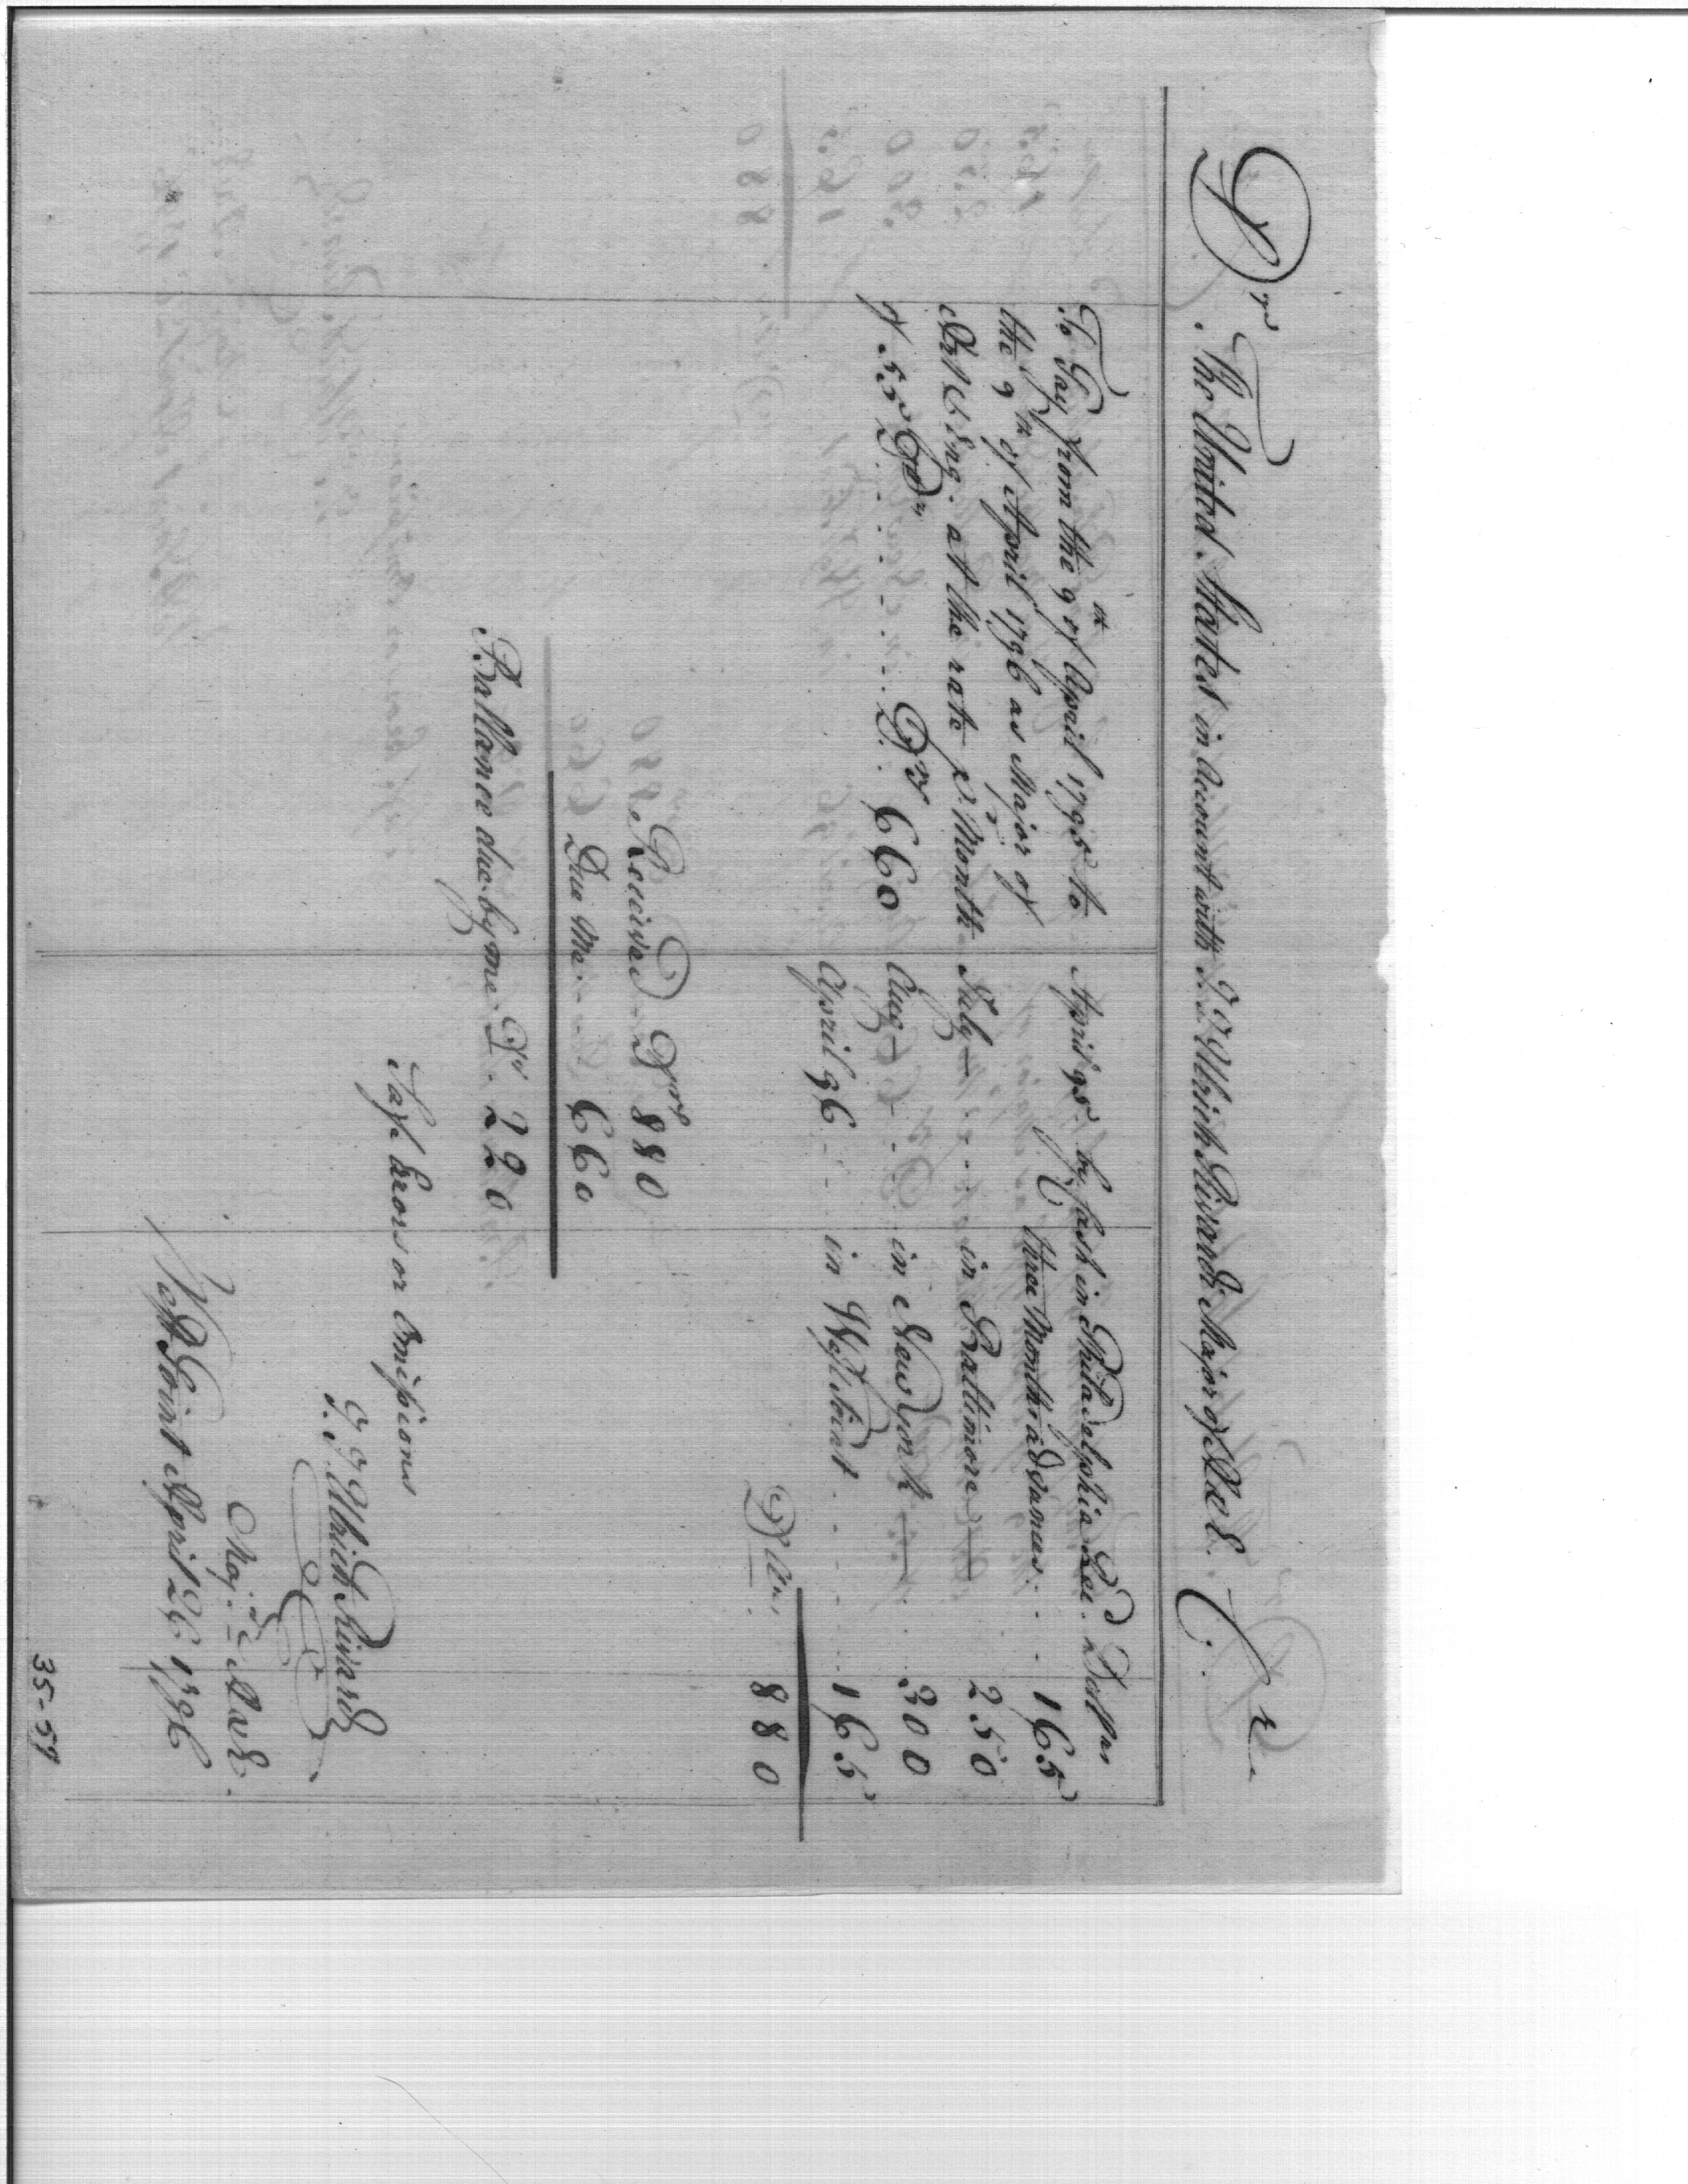 Dr. The United States in account with J. J. Ulrich Rivardi Major of A & E. Cr.
To Pay from the 9th of April 1795 to
the 9th of April 1796 as Major of
Art & Eng. at the rate pr. Month
of 55 Drs . . . . . . Drs 660
April 95. by Cash in Philadelphia Red. Dollars
three Months advances . . 165
July — in Baltimore — 250
Aug — in New York — 300
April 96 in West Point . . . . 165
Dllrs. 880
Received Drs 880
Due Me . . 660
Ballance due by me Drs. 220
Safe Erors or Omissions
J. J. Ulrich Rivardi
Maj. A & E.
West Point April 26 1796
35-59